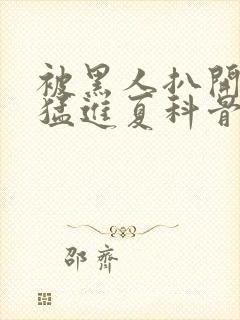 被黑人扒開
猛進夏科普
邵齊